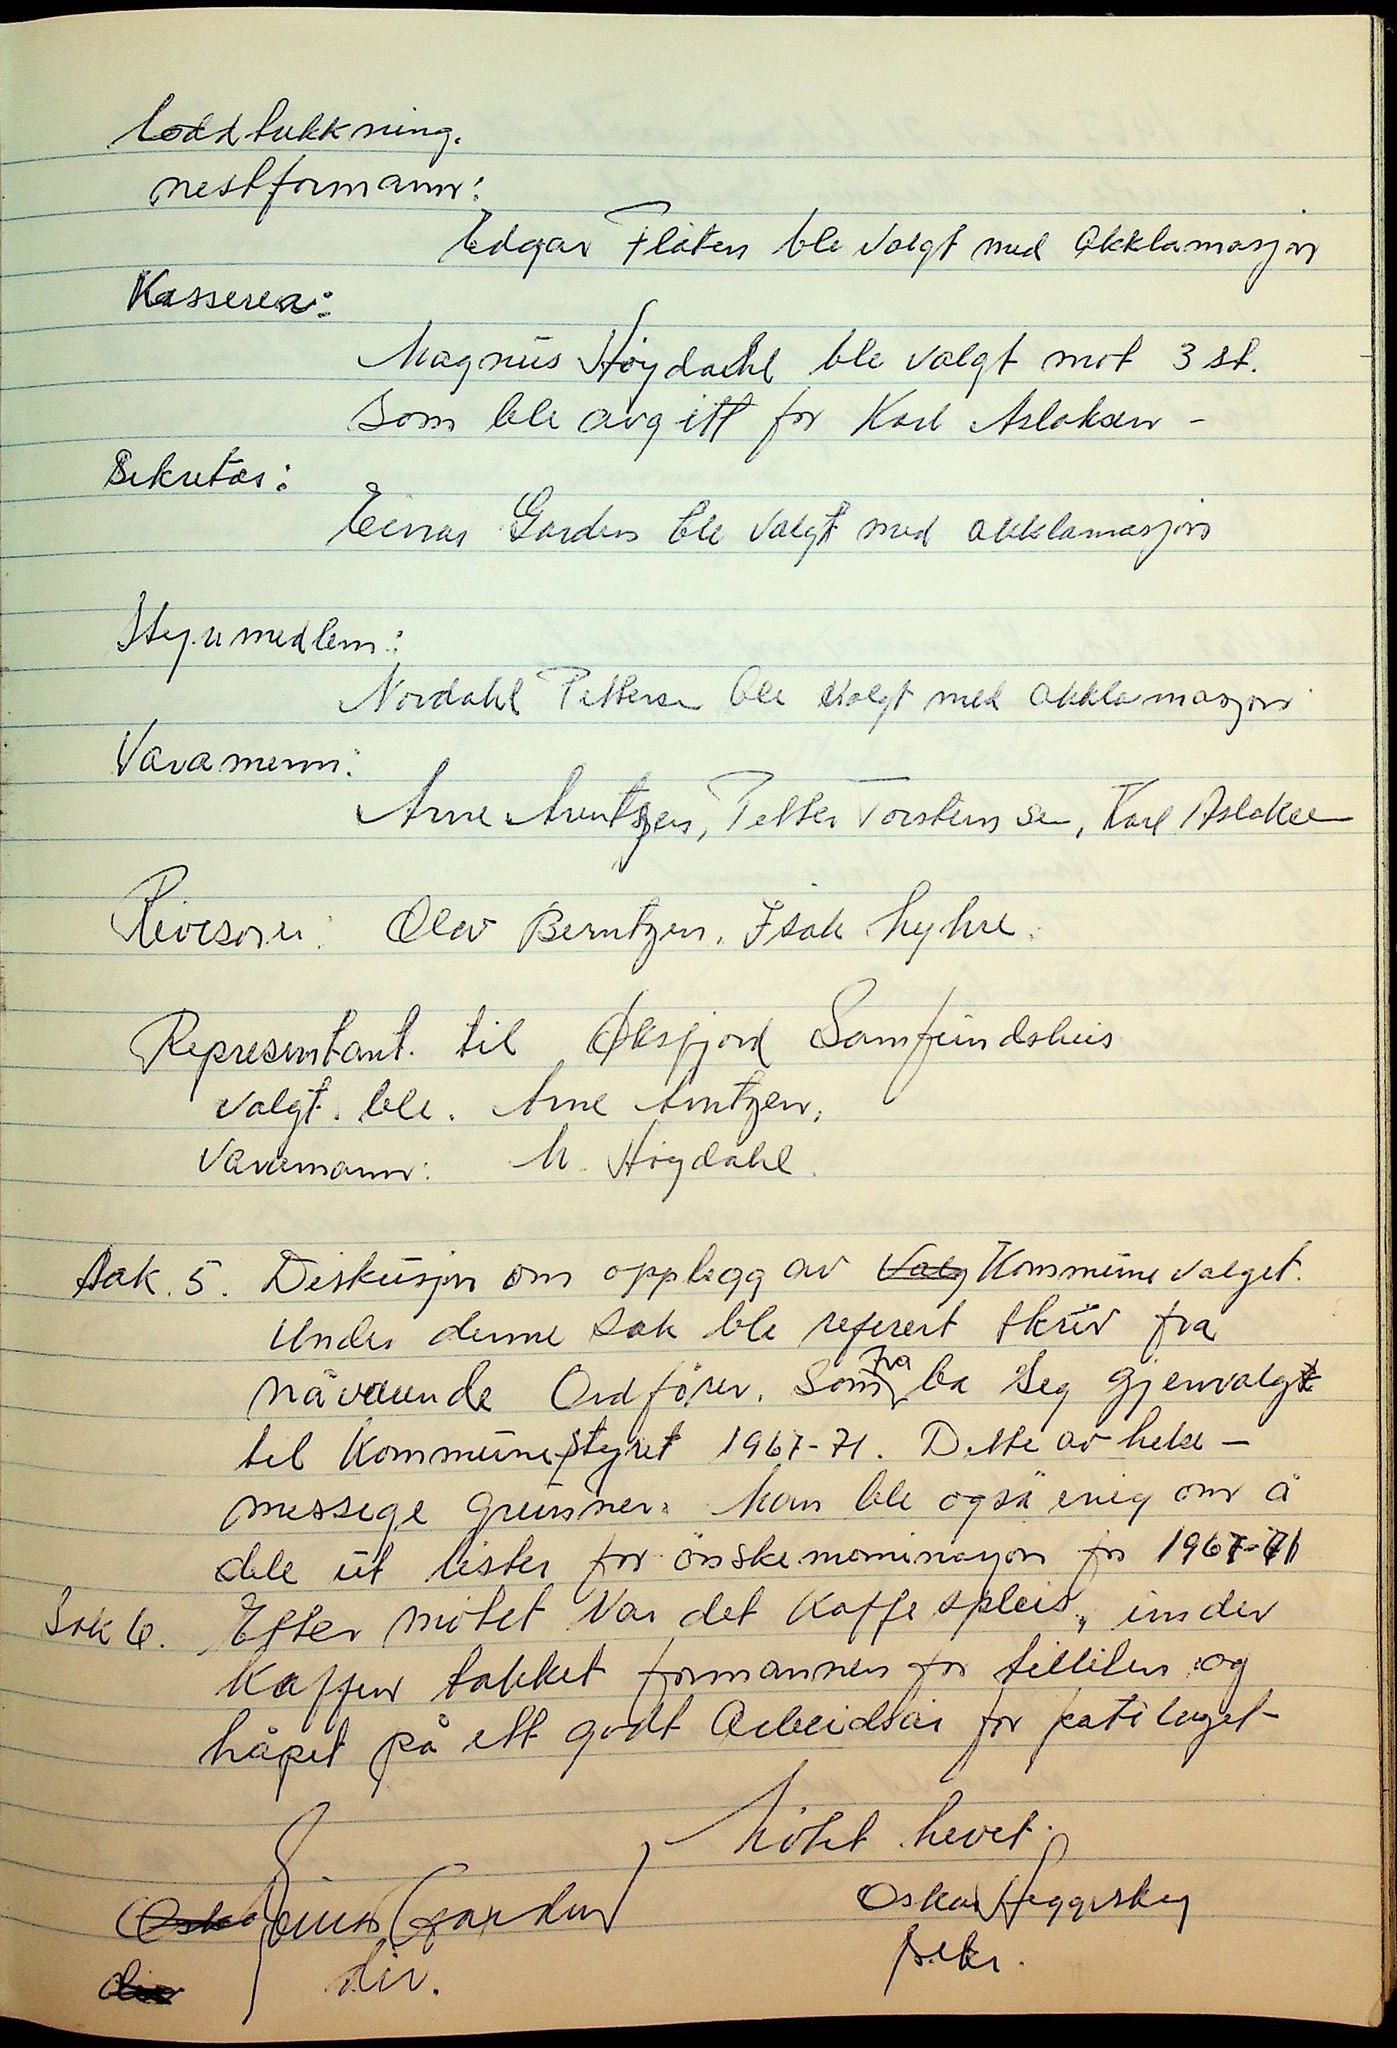 loddtrekkning.
nestformann:
Edgar Flåten ble valgt med akklamasjon
Kasserer:
Magnus Høydahl ble valgt mot 3 st.
som ble avgitt for Karl Aslaksen -
Sekretær:
Einar Garden ble valgt med akklamasjon
Styremedlem:
Nordahl Pettersen ble valgt med akklamasjon
Varamenn:
Arne Arntzen, Petter Torstensen, Karl Aslaksen
Revisorer: Olav Berntzen, Isak Lyhre.
Representant til Øksfjord Samfundshus
valgt ble. Arne Arntzen,
Varamann: M. Høydahl.
Sak. 5. Diskusjon om opplegg av Valg Kommunevalget.
Under denne sak ble referert skriv fra
nåværende Ordfører. Som fra ba seg gjenvalgt
til Kommunestyret 1967-71. Dette av helse-
messige grunner. Man ble også enig om å
dele ut lister for ønskenominasjon for 1967-71
Sak 6. Efter møtet var det Kaffe spleis, under
kaffen takket formannen for tilliten og
håpet på ett godt Arbeidsår for partilaget-
Møtet hevet.
Einar Garden
dir.
Oskar Heggeskog
sekr.